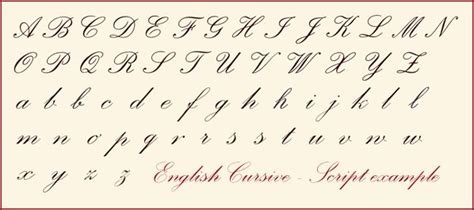 A B C D E F G H I J K L M N
O P Q R S T U V W X Y Z
a b c d e f g h i j k l l
m n o p q r s t u v w w
x y z z English Cursive - Script example